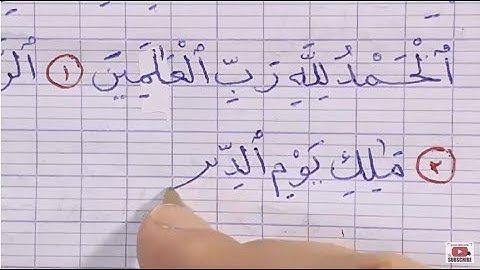 ٱلْحَمْدُ لِلَّهِ رَبِّ ٱلْعَٰلَمِينَ ١ ٱلر
٢ مَٰلِكِ يَوْمِ ٱلدِّىـ
SUBSCRIBE